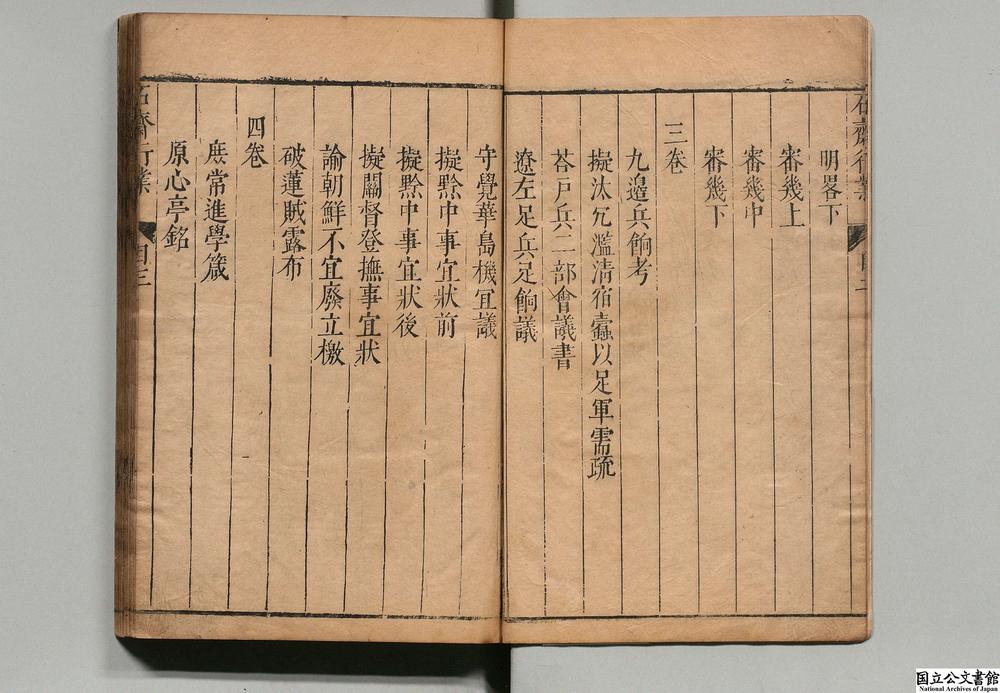 石齋行業
目二
明畧下
審幾上
審幾中
審幾下
三卷
九邉兵餉考
擬汰冗濫清宿蠹以足軍需疏
荅戸兵二部會議書
遼左足兵足餉議
守覺華島機宜議
擬黔中事宜狀前
擬黔中事宜狀後
擬關督登撫事宜狀
論朝鮮不宜廢立檄
破蓮賊露布
四卷
庶常進學箴
原心亭銘
石齋行業
目三
国立公文書館
National Archives of Japan